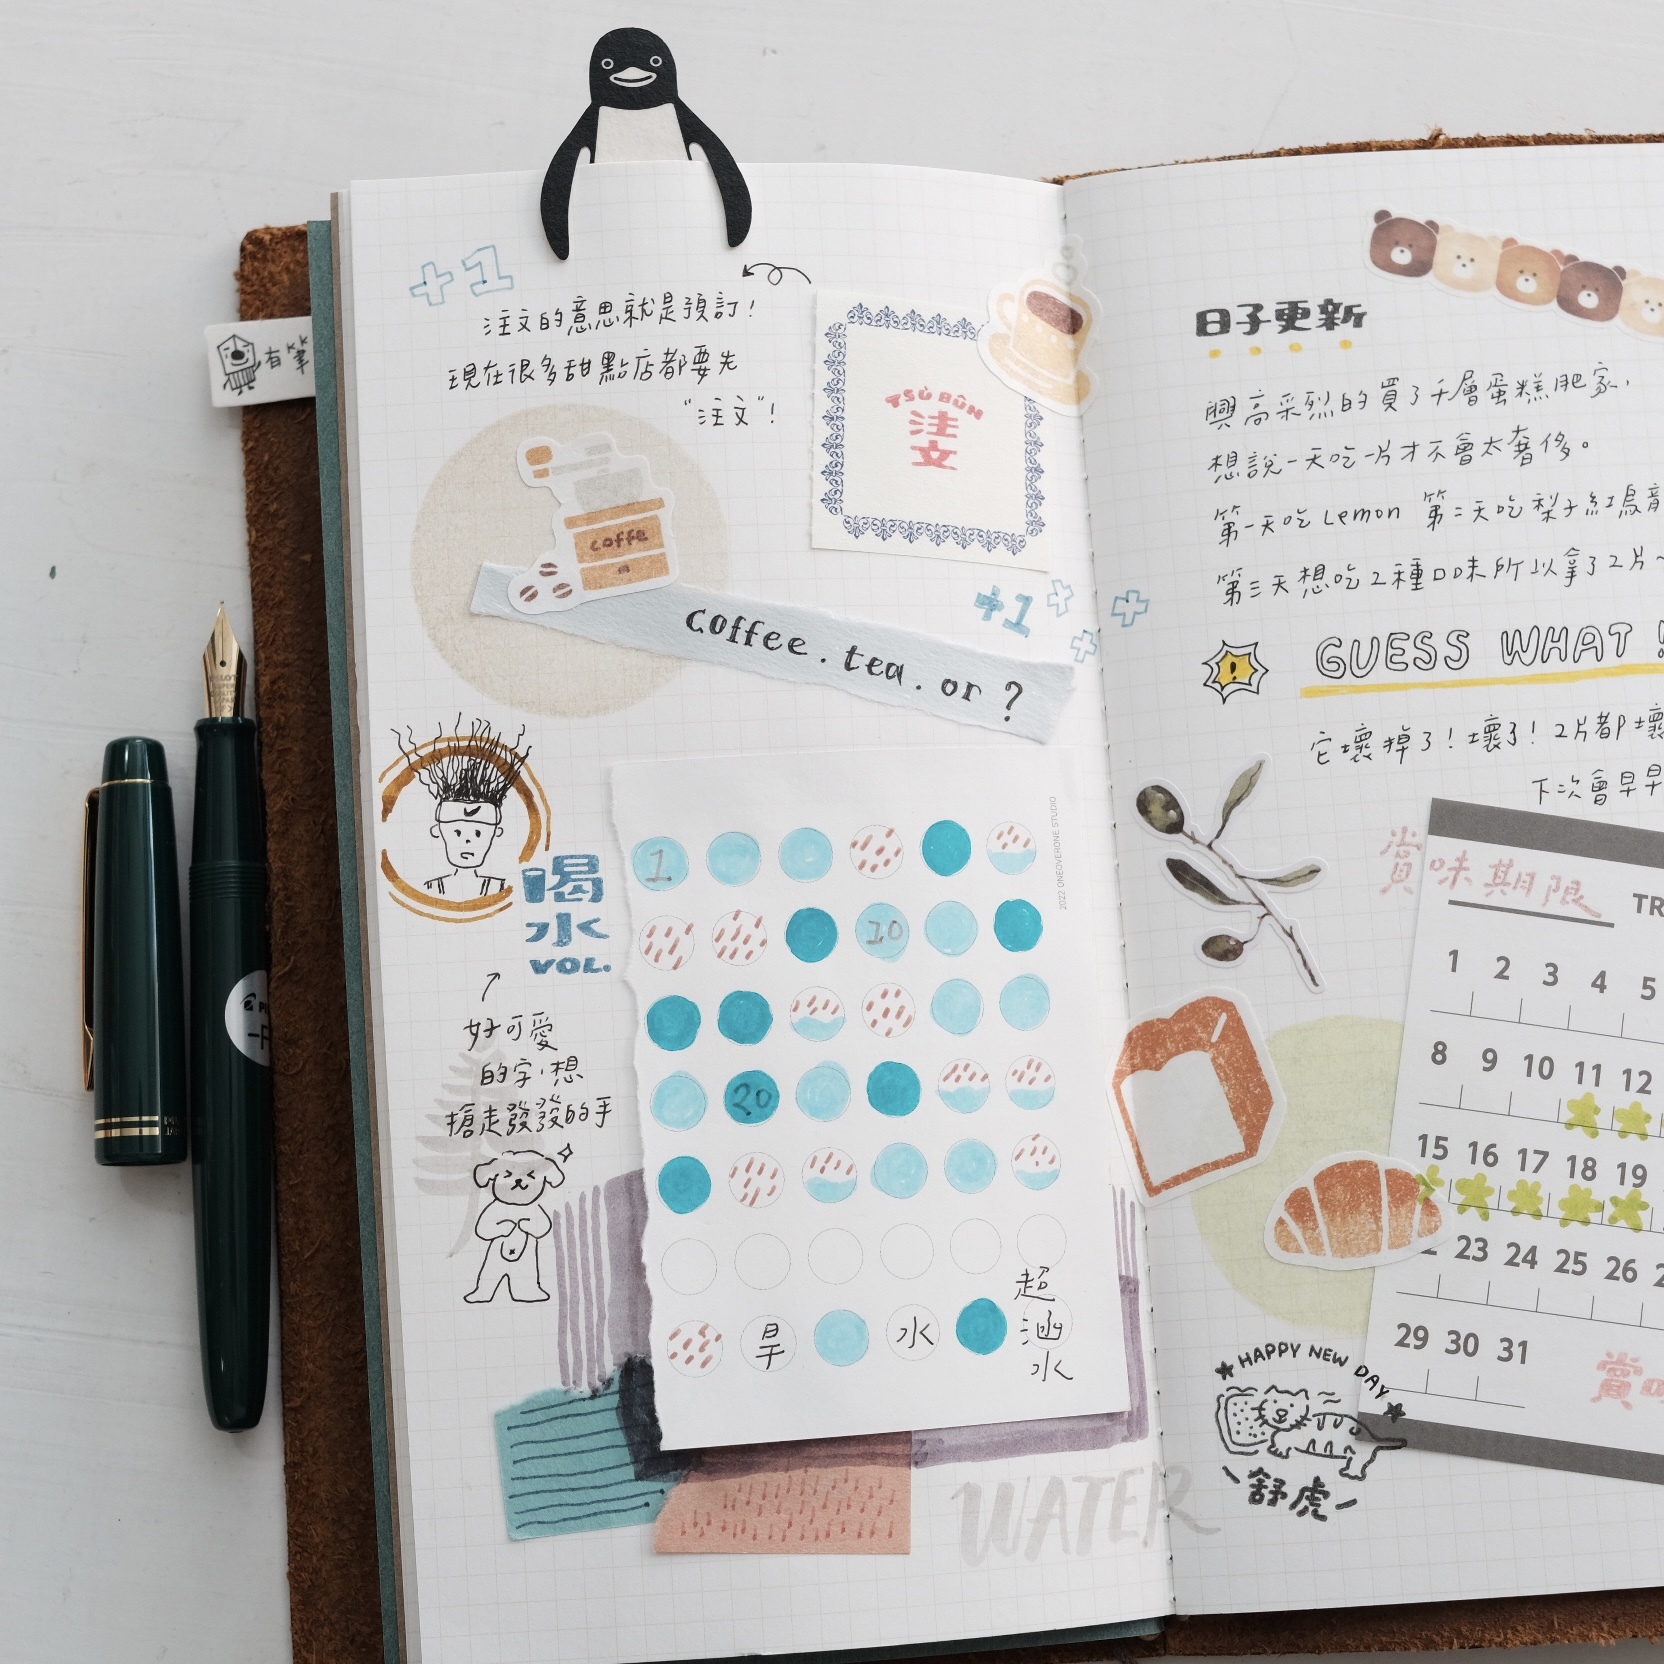 +1
注文的意思就是預訂！
現在很多甜點店都要先
"注文"！
TSÙ BÛN
注
文
有筆
KK
coffe
coffee . tea . or ?
+1
喝
水
VOL.
好可愛
的字，想
搶走發發的手
2022 ONEOVERONE STUDIO
1
10
20
旱
水
超
涵
水
WATER
日子更新
興高采烈的買了千層蛋糕肥家，
想說一天吃一片才不會太奢侈。
第一天吃 Lemon 第二天吃梨子紅烏龍
第三天想吃2種口味所以拿了2片~
!
GUESS WHAT !
它壞掉了！壞了！2片都壞
下次會早早
賞味期限
TR
1 2 3 4 5
8 9 10 11 12
15 16 17 18 19
23 24 25 26
29 30 31
賞味
HAPPY NEW DAY
舒虎